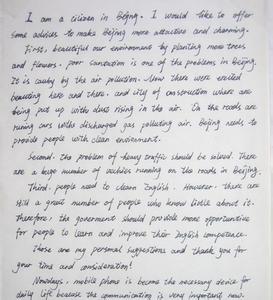 I am a citizen in Beijng. I would like to offer
some advices to make Beijing more attractive and charming.
First, beautiful our environment by planting more trees
and flowers. poor sanitation is one of the problems in Beijing.
It is cauby by the air pollution. Now there were erected
beauting here and there. and city of constrouction where are
being put up with dust rising in the air. On the roads are
runing cars with discharged gas polluting air. Beijing needs to
provide people with clean enviroment.
Second. the problem of heavy traffic should be solved. There
are a huge number of vechies running on the roads in Beijing.
Third. people need to learn English. However. there are
still a great number of people who know little about it.
Therefore, the government should provide more opportunities
for people to learn and improve their English competence.
Those are my personal suggestions and thank you for
your time and consideration!
Nowdays, mobile phone is become the necessary device for
daily life because the communication is very important now.